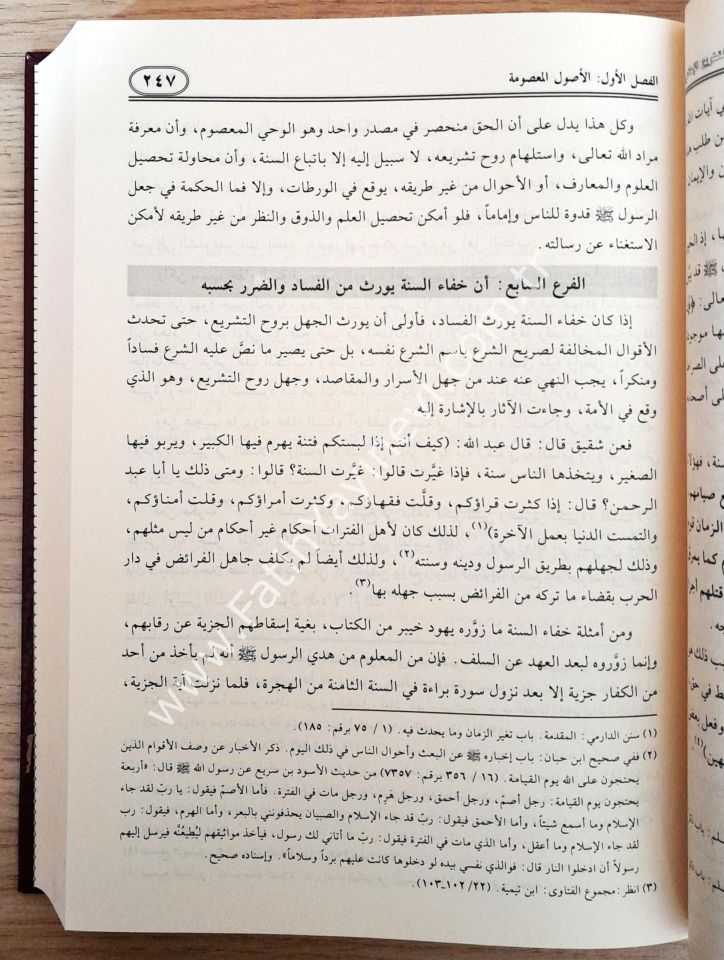 الفصل الأول: الأصول المعصومة
٢٤٧
وكل هذا يدل على أن الحق منحصر في مصدر واحد وهو الوحي المعصوم، وأن معرفة
مراد الله تعالى، واستلهام روح تشريعه، لا سبيل إليه إلا باتباع السنة، وأن محاولة تحصيل
العلوم والمعارف، أو الأحوال من غير طريقه، يوقع في الورطات، وإلا فما الحكمة في جعل
الرسول ﷺ قدوة للناس وإماماً، فلو أمكن تحصيل العلم والذوق والنظر من غير طريقه لأمكن
الاستغناء عن رسالته.
الفرع السابع: أن خفاء السنة يورث من الفساد والضرر بحسبه
إذا كان خفاء السنة يورث الفساد، فأولى أن يورث الجهل بروح التشريع، حتى تحدث
الأقوال المخالفة لصريح الشرع باسم الشرع نفسه، بل حتى يصير ما نصَّ عليه الشرع فساداً
ومنكراً، يجب النهي عنه عند من جهل الأسرار والمقاصد، وجهل روح التشريع، وهو الذي
وقع في الأمة، وجاءت الآثار بالإشارة إليه.
فعن شقيق قال: قال عبد الله: (كيف أنتم إذا لبستكم فتنة يهرم فيها الكبير، ويربو فيها
الصغير، ويتخذها الناس سنة، فإذا غيَّرت قالوا: غيَّرت السنة؟ قالوا: ومتى ذلك يا أبا عبد
الرحمن؟ قال: إذا كثرت قراؤكم، وقلَّت فقهاؤكم، وكثرت أمراؤكم، وقلت أمناؤكم،
والتمست الدنيا بعمل الآخرة)(١)، لذلك كان لأهل الفترات أحكام غير أحكام من ليس مثلهم،
وذلك لجهلهم بطريق الرسول ودينه وسنته(٢)، ولذلك أيضاً لم يكلف جاهل الفرائض في دار
الحرب بقضاء ما تركه من الفرائض بسبب جهله بها(٣)
ومن أمثلة خفاء السنة ما زوَّره يهود خيبر من الكتاب، بغية إسقاطهم الجزية عن رقابهم،
وإنما زوَّروه لبعد العهد عن السلف. فإن من المعلوم من هدي الرسول ﷺ أنه لم يأخذ من أحد
من الكفار جزية إلا بعد نزول سورة براءة في السنة الثامنة من الهجرة، فلما نزلت آية الجزية،
(١) سنن الدارمي: المقدمة. باب تغير الزمان وما يحدث فيه. (١ / ٧٥ برقم: ١٨٥).
(٢) ففي صحيح ابن حبان: باب إخباره ﷺ عن البعث وأحوال الناس في ذلك اليوم. ذكر الأخبار عن وصف الأقوام الذين
يحتجون على الله يوم القيامة. (١٦ / ٣٥٦ برقم: ٧٣٥٧) من حديث الأسود بن سريع عن رسول الله ﷺ قال: «أربعة
يحتجون يوم القيامة: رجل أصمّ، ورجل أحمق، ورجل هَرِم، ورجل مات في الفترة. فأما الأصمّ فيقول: يا ربّ لقد جاء
الإسلام وما أسمع شيئاً، وأما الأحمق فيقول: ربّ قد جاء الإسلام والصبيان يحذفونني بالبعر، وأما الهرم، فيقول: رب
لقد جاء الإسلام وما أعقل، وأما الذي مات في الفترة فيقول: ربّ ما أتاني لك رسول، فيأخذ مواثيقهم ليُطِيعُنَّه فيرسل إليهم
رسولاً أن ادخلوا النار قال: فوالذي نفسي بيده لو دخلوها كانت عليهم برداً وسلاماً». وإسناده صحيح.
(٣) انظر: مجموع الفتاوى: ابن تيمية. (٢٢/ ١٠٢-١٠٣).